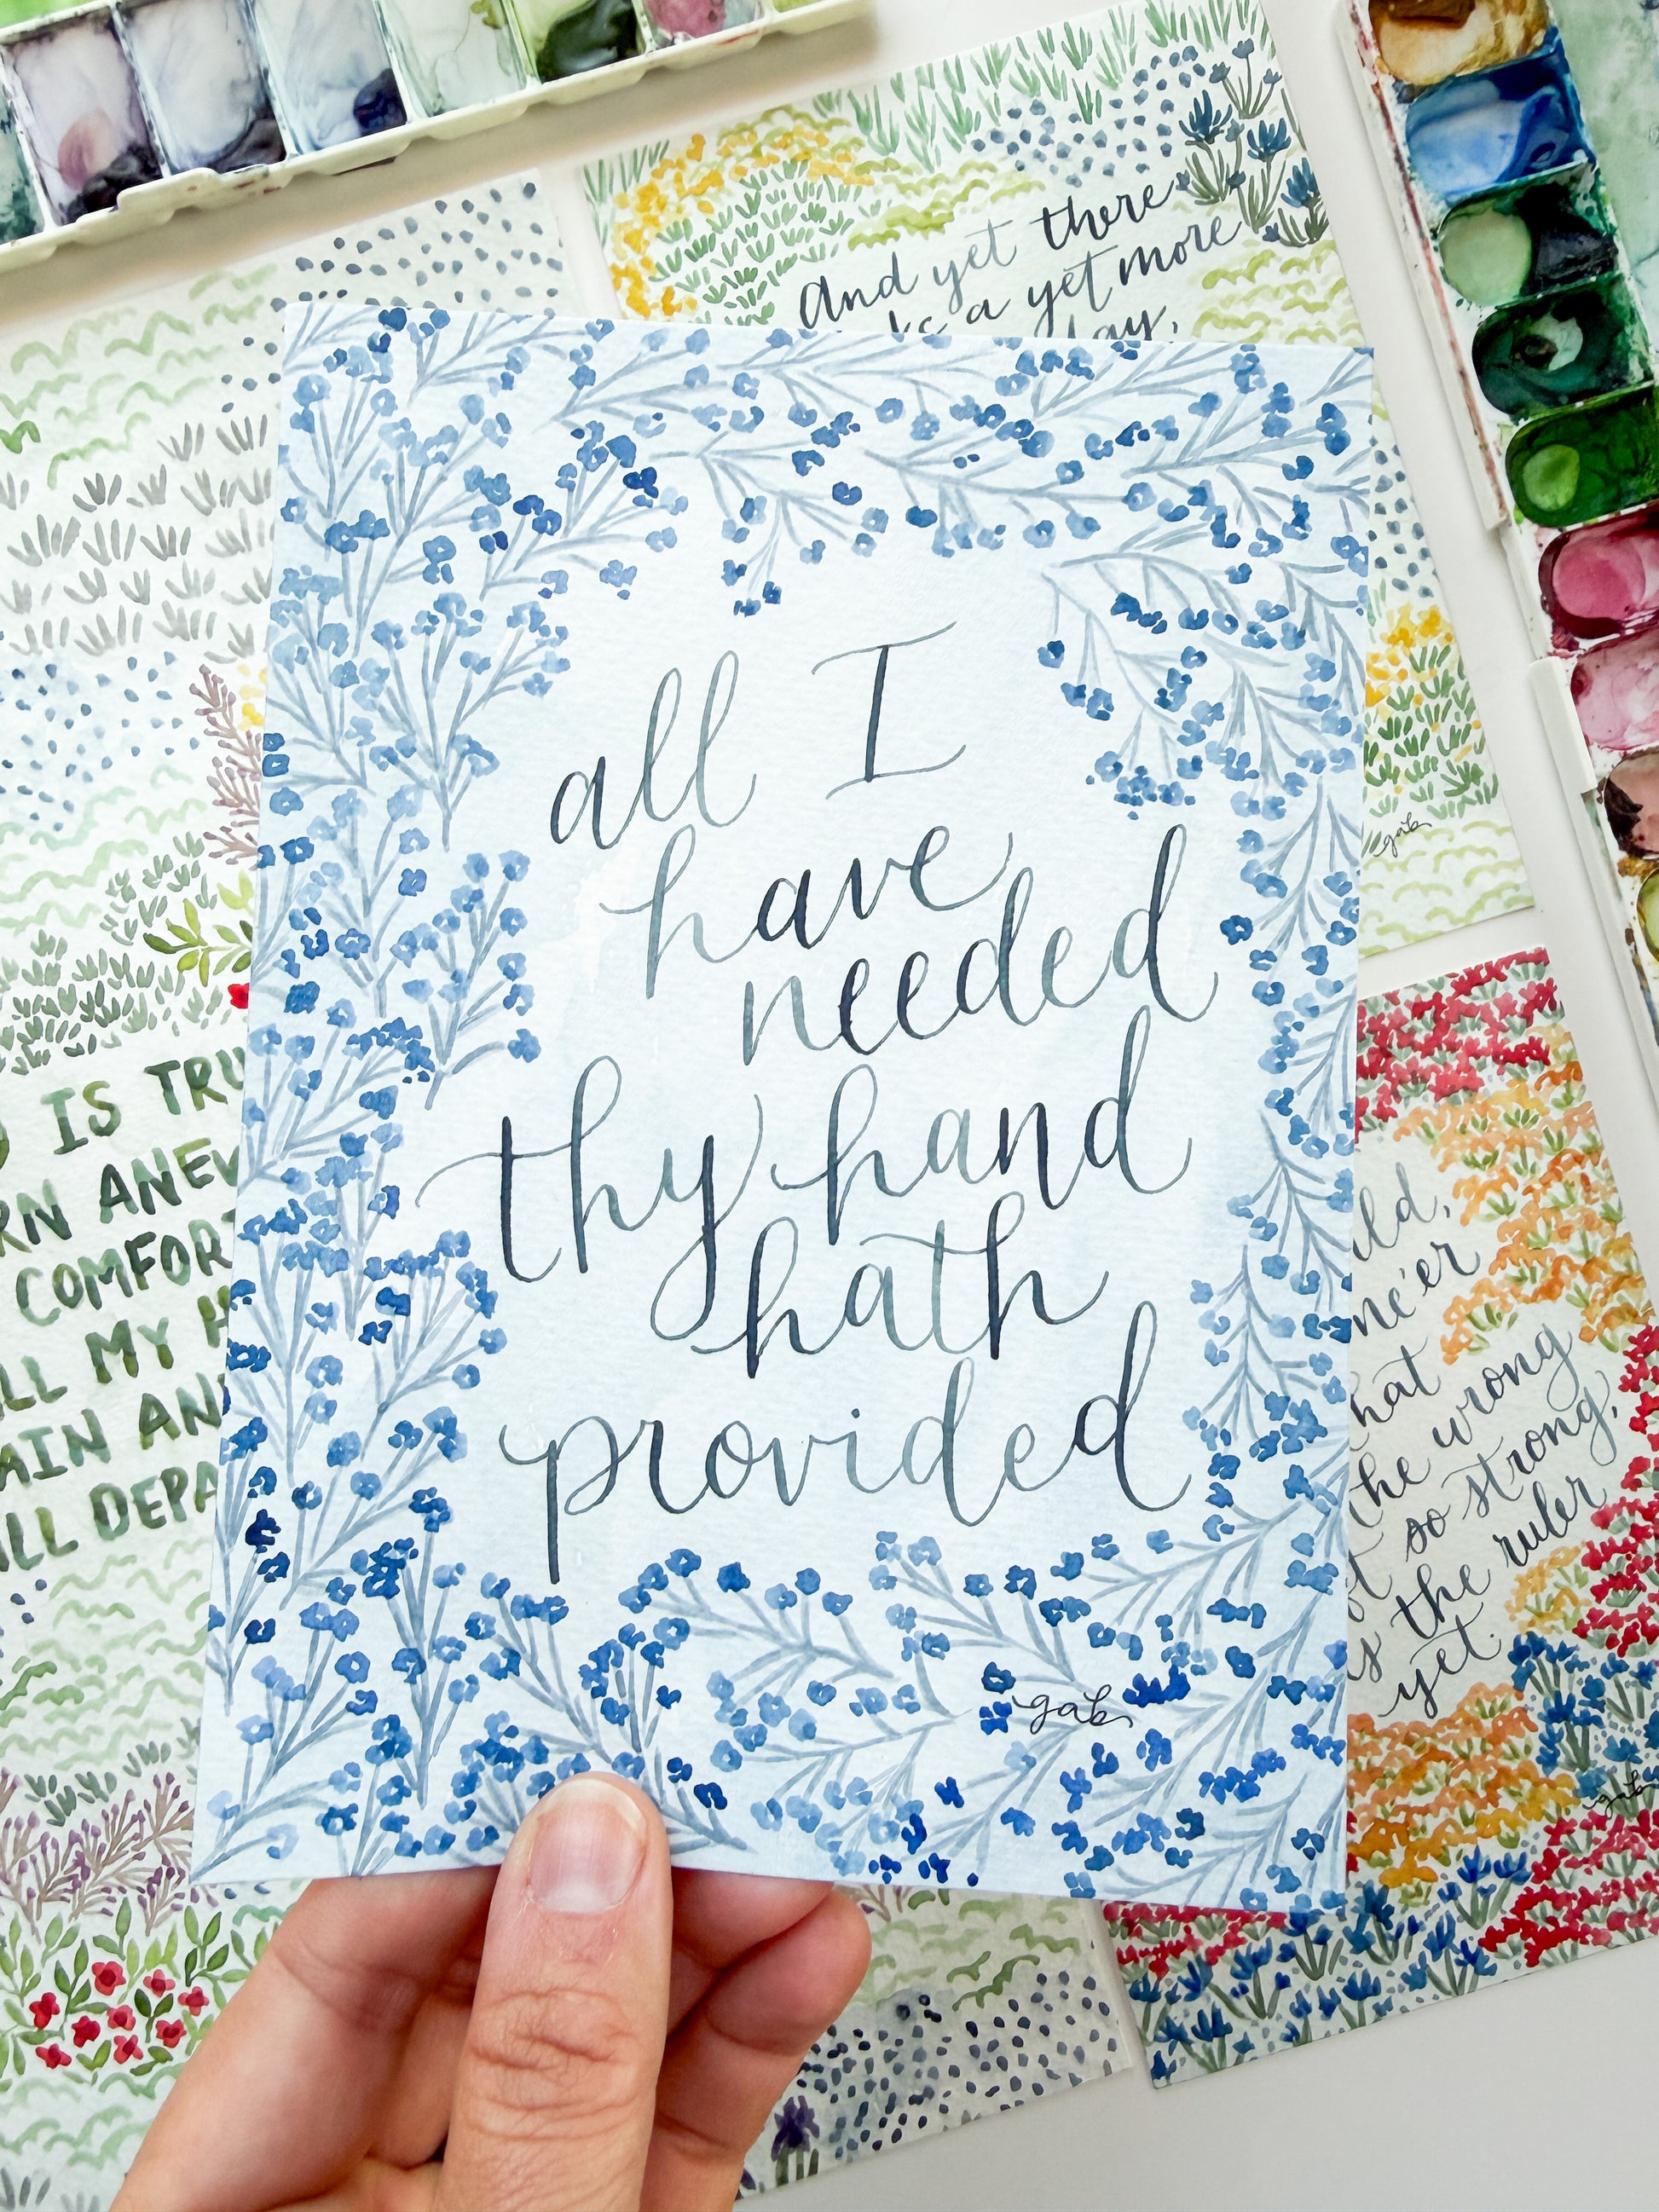 And yet there
a yet more
day,
all I
have
needed
thy hand
hath
provided
gab
gab
IS TRU
ANEW
COMFOR
MY
AIN AN
DEPA
ne'er
hat
the wrong
so strong,
the ruler
yet.
gab